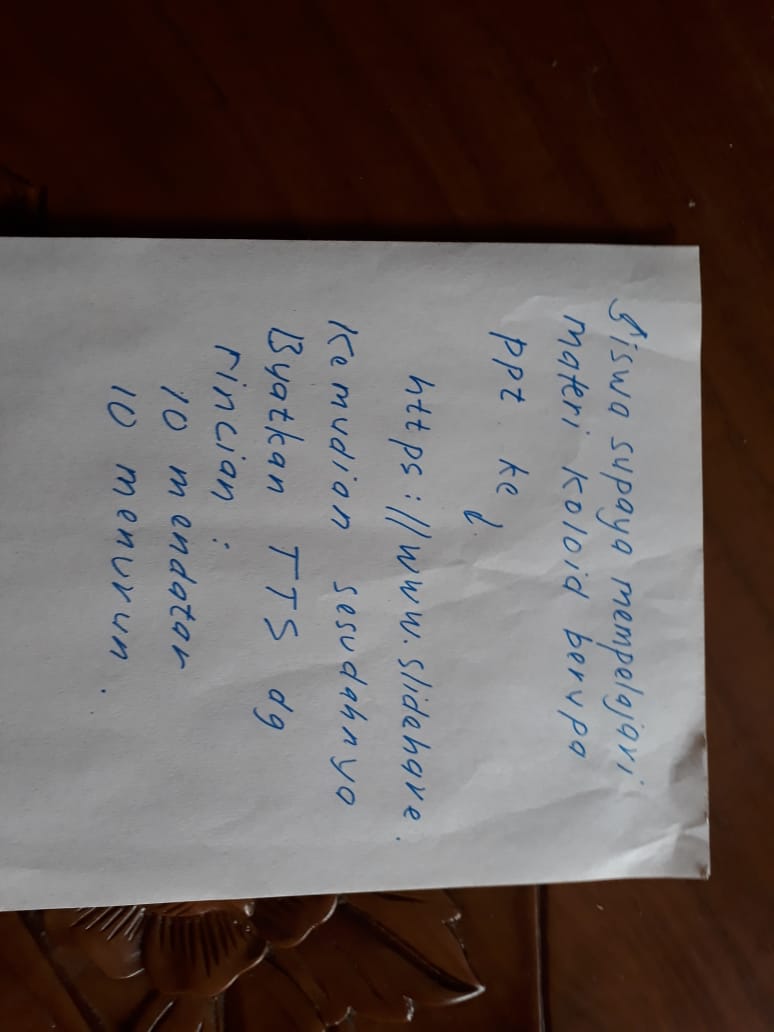 Siswa supaya mempelajari
materi koloid berupa
ppt ke
https://www.slidehare.
Kemudian sesudahnya
Buatkan TTS dg
rincian :
10 mendatar
10 menurun.